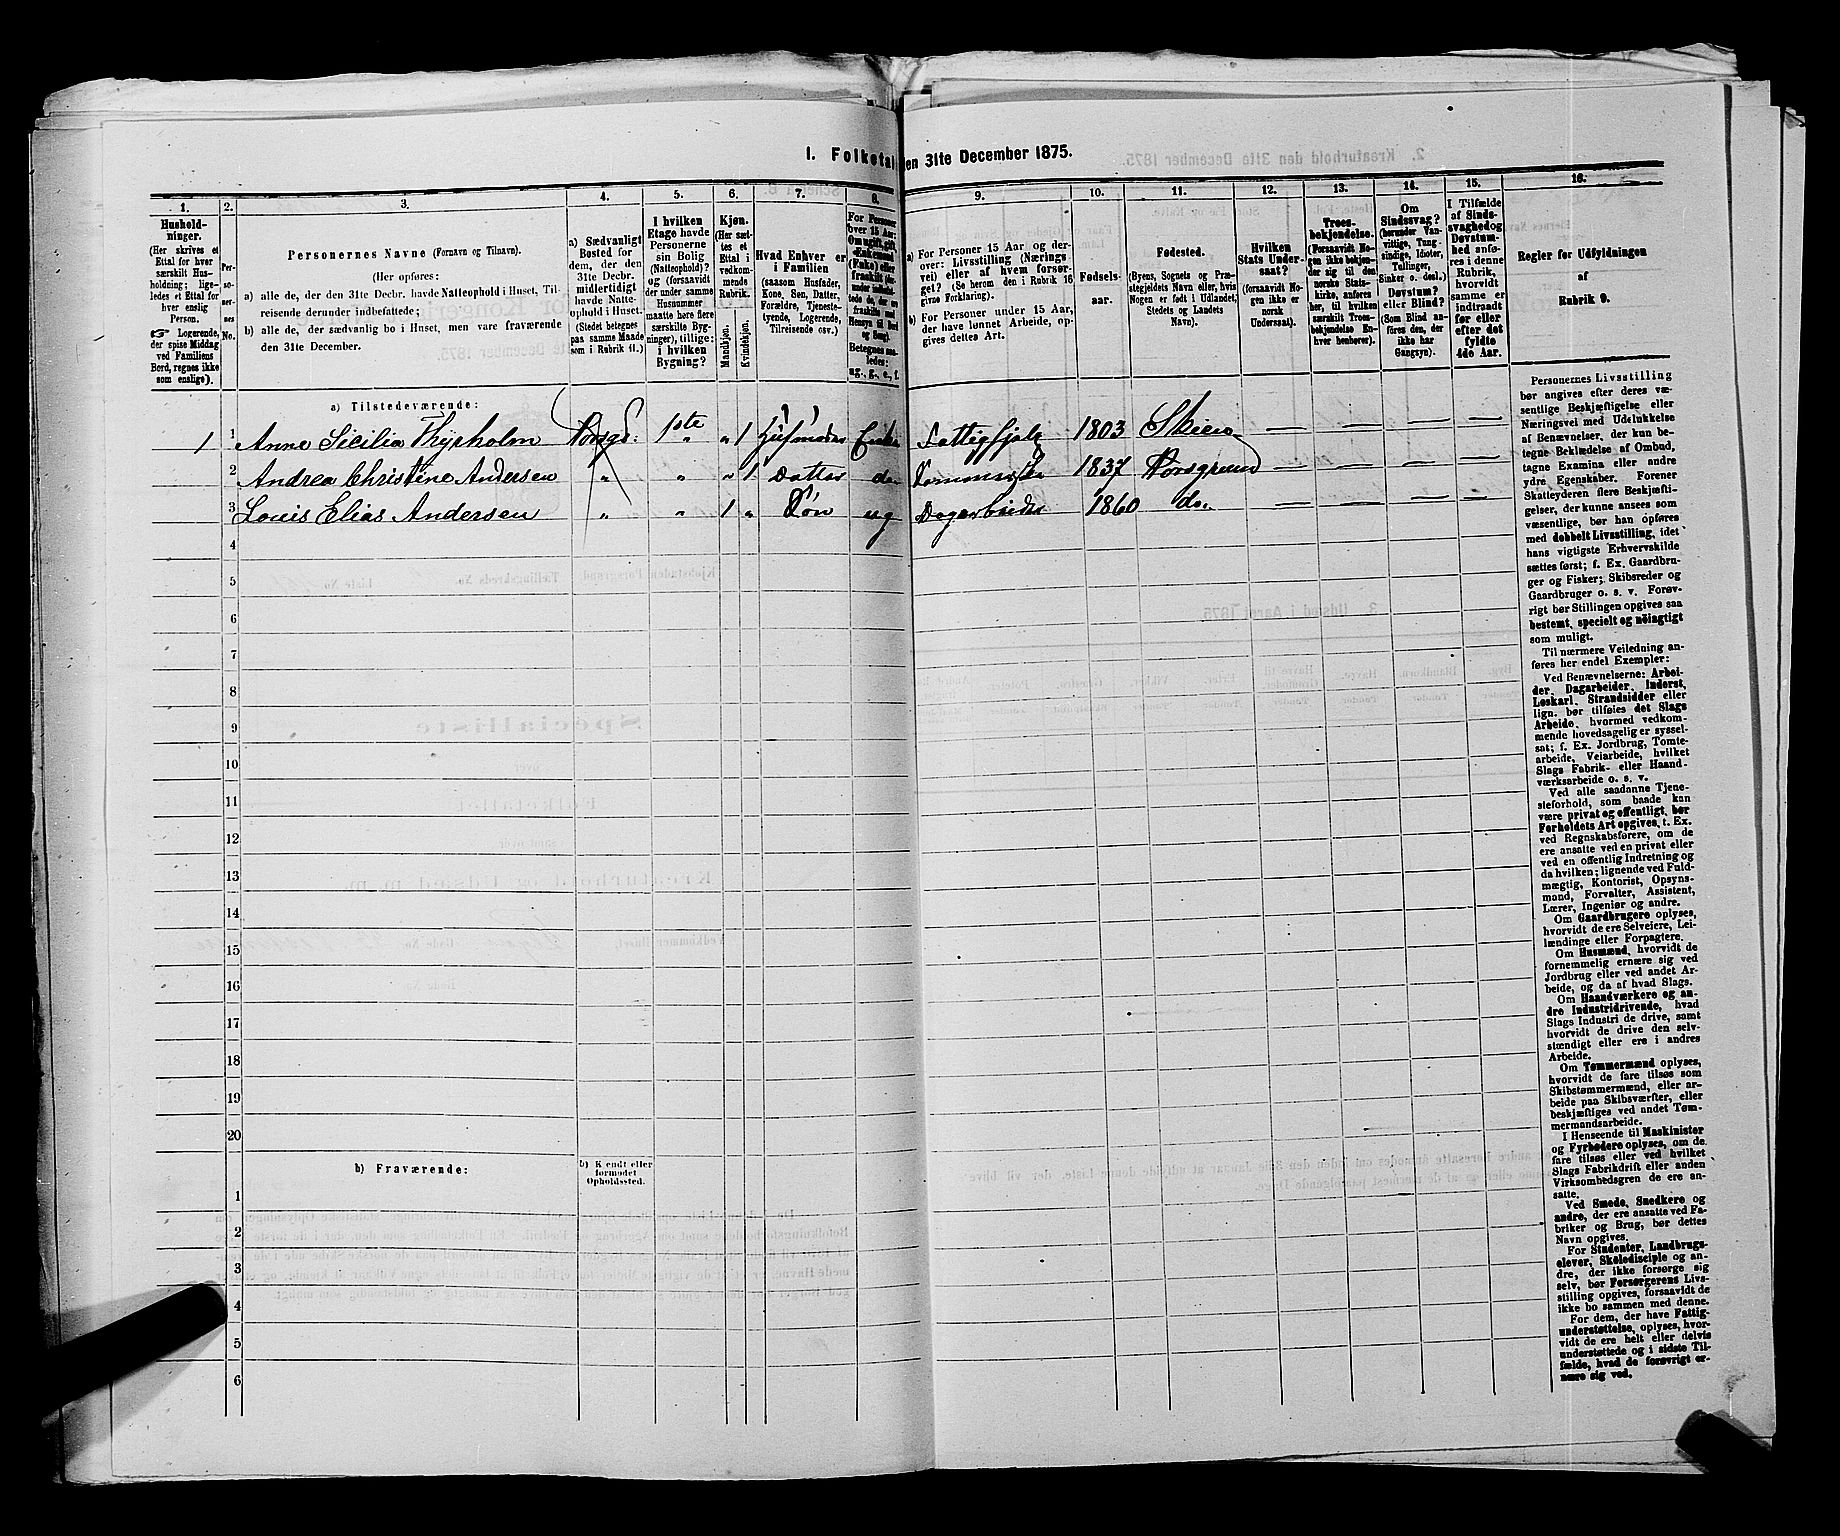 1. Folketal
den 31te December 1875.
1.
2.
3.
4.
5.
6.
7.
8.
9.
10.
11.
12.
13.
14.
15.
16.
Hushold-
ninger.
(Her skrives et
Ettal for hver
særskilt Hus-
holdning; lige-
ledes et Ettal for
hver enslig
Person.
☞ Logerende,
der spise Middag
ved Familiens
Bord, regnes ikke
som enslige).
Per-
so-
ner-
nes
No.
Personernes Navne (Fornavn og Tilnavn).
(Her opføres:
a) alle de, der den 31te Decbr. havde Natteophold i Huset, Til-
reisende derunder indbefattede;
b) alle de, der sædvanlig bo i Huset, men vare fraværende
den 31te December.
a) Sædvanligt
Bosted for
dem, der den
31te Decbr.
midlertidigt
havde Natte-
ophold i Huset.
(Stedet betegnes
paa samme Maade
som i Rubrik 11.)
I hvilken
Etage havde
Personerne
sin Bolig
(Natteophold)?
og (forsaavidt
der under samme
Husnummer
maatte høre flere
særskilte Byg-
ninger), tillige:
i hvilken
Bygning?
Kjøn.
(Her sæt-
tes et
Ettal i
vedkom-
mende
Rubrik.
Mandkjøn.
Kvindekjøn.
Hvad Enhver er
i Familien
(saasom Husfader,
Kone, Søn, Datter,
Forældre, Tjeneste-
tyende, Logerende,
Tilreisende osv.)
For Personer
over 15 Aar:
Om ugift, gift,
Enkemand
(Enke) eller
fraskilt
Betegnes saa-
ledes:
ug., g., e., f.
a) For Personer 15 Aar og der-
over: Livsstilling (Nærings-
vei) eller af hvem forsør-
get? (Se herom den i Rubrik 16
givne Forklaring).
b) For Personer under 15 Aar,
der have lønnet Arbeide, op-
gives dettes Art.
Fødsels-
aar.
Fødested.
(Byens, Sognets og Præ-
stegjeldets Navn eller, hvis
Nogen er født i Udlandet,
Stedets og Landets
Navn).
Hvilken
Stats Under-
saat?
(forsaavidt No-
gen ikke er
norsk
Undersaat).
Troes-
bekjendelse.
(Forsaavidt No-
gen ikke bekjen-
der sig til den
norske Stats-
kirke, anføres
her, til hvilken
særskilt Troes-
bekjendelse En-
hver henhører).
Om
Sindssvag?
(herunder Van-
vittige, Tung-
sindige, Idioter,
Tullinger,
Sinker o. desl.)
Døvstum?
eller Blind?
(Som Blind an-
føres den, der
ikke har
Gangsyn).
I Tilfælde
af Sinds-
svaghed og
Døvstum-
hed anfø-
res i denne
Rubrik,
hvorvidt
samme er
indtraadt
før eller
efter det
fyldte
4de Aar.
Regler for Udfyldningen
af
Rubrik 9.
a) Tilstedeværende:
1 1 Anne Sicilia Thyrholm Porsgd: 1ste „ 1 Husmoder Enke Fattighjelp 1803 Skien — — — —
2 Andrea Christine Andersen „ „ „ 1 Datter do 1837 Porsgrund — — — —
3 Louis Elias Andersen „ „ 1 „ Søn ug Dagarbeider 1860 do. — — — —
4
5
6
7
8
9
10
11
12
13
14
15
16
17
18
19
20
b) Fraværende:
b) Kjendt eller
formodet
Opholdssted.
1
2
3
4
5
6
Personernes Livsstilling
bør angives efter deres væ-
sentlige Beskjæftigelse eller
Næringsvei med Udelukkelse
af Benævnelser, der kun be-
tegne Beklædelse af Ombud,
tagne Examina eller andre
ydre Egenskaber. Forener
Skatteyderen flere Beskjæfti-
gelser, der kunne ansees som
væsentlige, bør han opføres
med dobbelt Livsstilling, idet
hans vigtigste Erhvervskilde
sættes først; f. Ex. Gaardbru-
ger og Fisker; Skibsreder og
Gaardbruger o. s. v. Forøv-
rigt bør Stillingen opgives saa
bestemt, specielt og nøiagtigt
som muligt.
Til nærmere Veiledning an-
føres her endel Exempler:
Ved Benævnelserne: Arbei-
der, Dagarbeider, Inderst,
Løskarl, Strandsidder eller
lign. bør tilføies det Slags
Arbeide, hvormed vedkom-
mende hovedsagelig er syssel-
sat; f. Ex. Jordbrug, Tomte-
arbeide, Veiarbeide, hvilket
Slags Fabrik- eller Haand-
værksarbeide o. s. v.
Ved alle saadanne Tjene-
steforhold, som baade kan
være privat og offentligt, bør
Forholdets Art opgives, t. Ex.
ved Regnskabsførere, om de
ere ansatte ved en privat eller
ved en offentlig Indretning og
da hvilken; lignende ved Fuld-
mægtig, Kontorist, Opsyns-
mand, Forvalter, Assistent,
Lærer, Ingeniør og andre.
Om Gaardbrugere oplyses,
hvorvidt de ere Selveiere, Lei-
lændinge eller Forpagtere.
Om Husmænd, hvorvidt de
fornemmelig ernære sig ved
Jordbrug eller ved andet Ar-
beide, og da af hvad Slags.
Om Haandværkere og an-
dre Industridrivende, hvad
Slags Industri de drive, samt
hvorvidt de drive den selv-
stændigt eller ere i andres
Arbeide.
Om Tømmermænd oplyses,
hvorvidt de fare tilsøs som
Skibstømmermænd, eller ar-
beide paa Skibsværfter, eller
beskjæftiges ved andet Tøm-
mermandsarbeide.
I Henseende til Maskinister
og Fyrbødere oplyses, om de
fare tilsøs eller ved hvilket
Slags Fabrikdrift eller anden
Virksomhedsgren de ere an-
satte.
Ved Smede, Snedkere og
andre, der ere ansatte ved Fa-
briker og Brug, bør dettes
Navn opgives.
For Studenter, Landbrugs-
elever, Skoledisciple og an-
dre, der ikke forsørge sig
selv, bør Forsørgerens Livs-
stilling opgives, forsaavidt de
ikke bo sammen med denne.
For dem, der have Fattig-
understøttelse, oplyses, hvor-
vidt de ere helt eller delvis
understøttede og i sidste Til-
fælde, hvad de forøvrigt er-
nære sig ved.